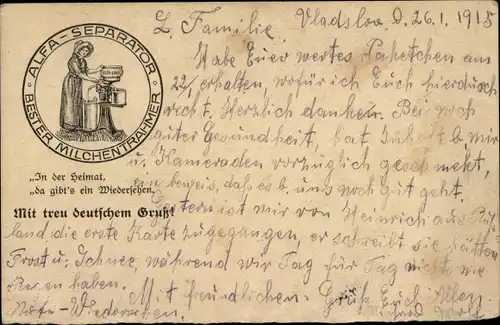 ALFA-SEPARATOR
BESTER MILCHENTRAHMER
„In der Heimat,
„da gibt's ein Wiedersehen.
Mit treu deutschem Gruß!
L. Familie
Vladslov, d. 26.1.1915
Habe Euer wertes Paketchen am
22/1 erhalten, wofür ich Euch hierdurch
recht Herzlich danke. Bei noch
guter Gesundheit, hat Inhalt b. mir
u. Kameraden vorzüglich geschmekt,
ein beweis, daß es b. uns noch gut geht.
Gestern ist mir von Heinrich aus
land die erste Karte zugegangen, er schreibt sie hätten
Frost u. Schnee, während wir Tag für Tag nicht wie
Regen haben.
Mit freundlichen Gruß Euch Allen
Wiedersehen.
Richard